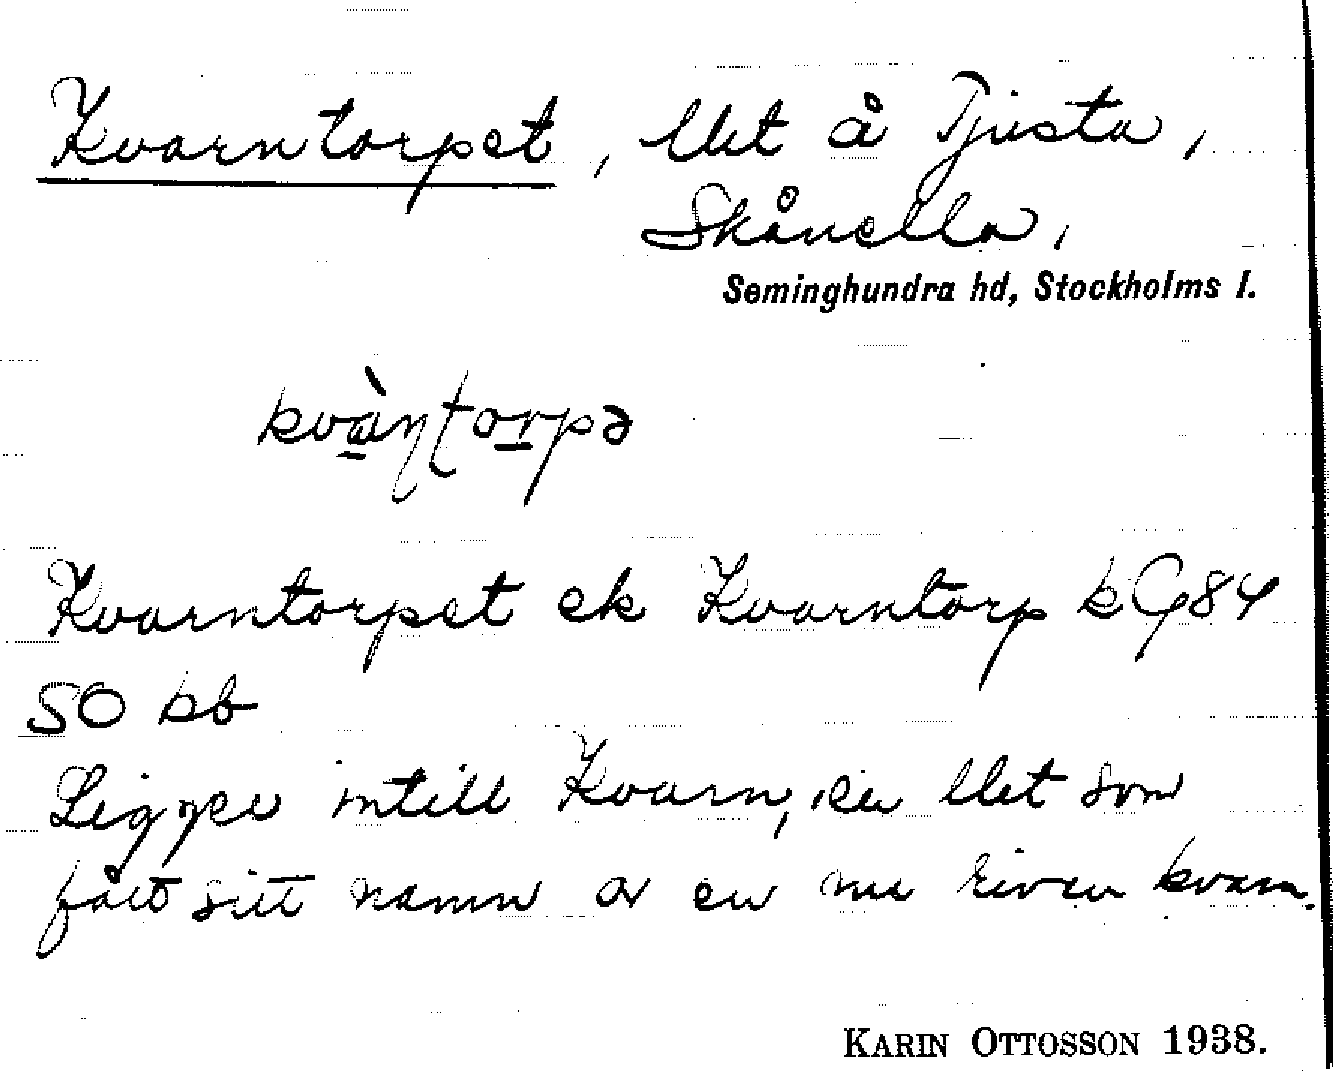 Kvarntorpet, llet å Tjusta,
Skånella,
Seminghundra hd, Stockholms l.
kvàɳʈorpə
Kvarntorpet ek Kvarntorp k G 84
SO kb
Ligger intill Kvarn, en llet som
fått sitt namn av en nu riven kvarn.
KARIN OTTOSSON 1938.